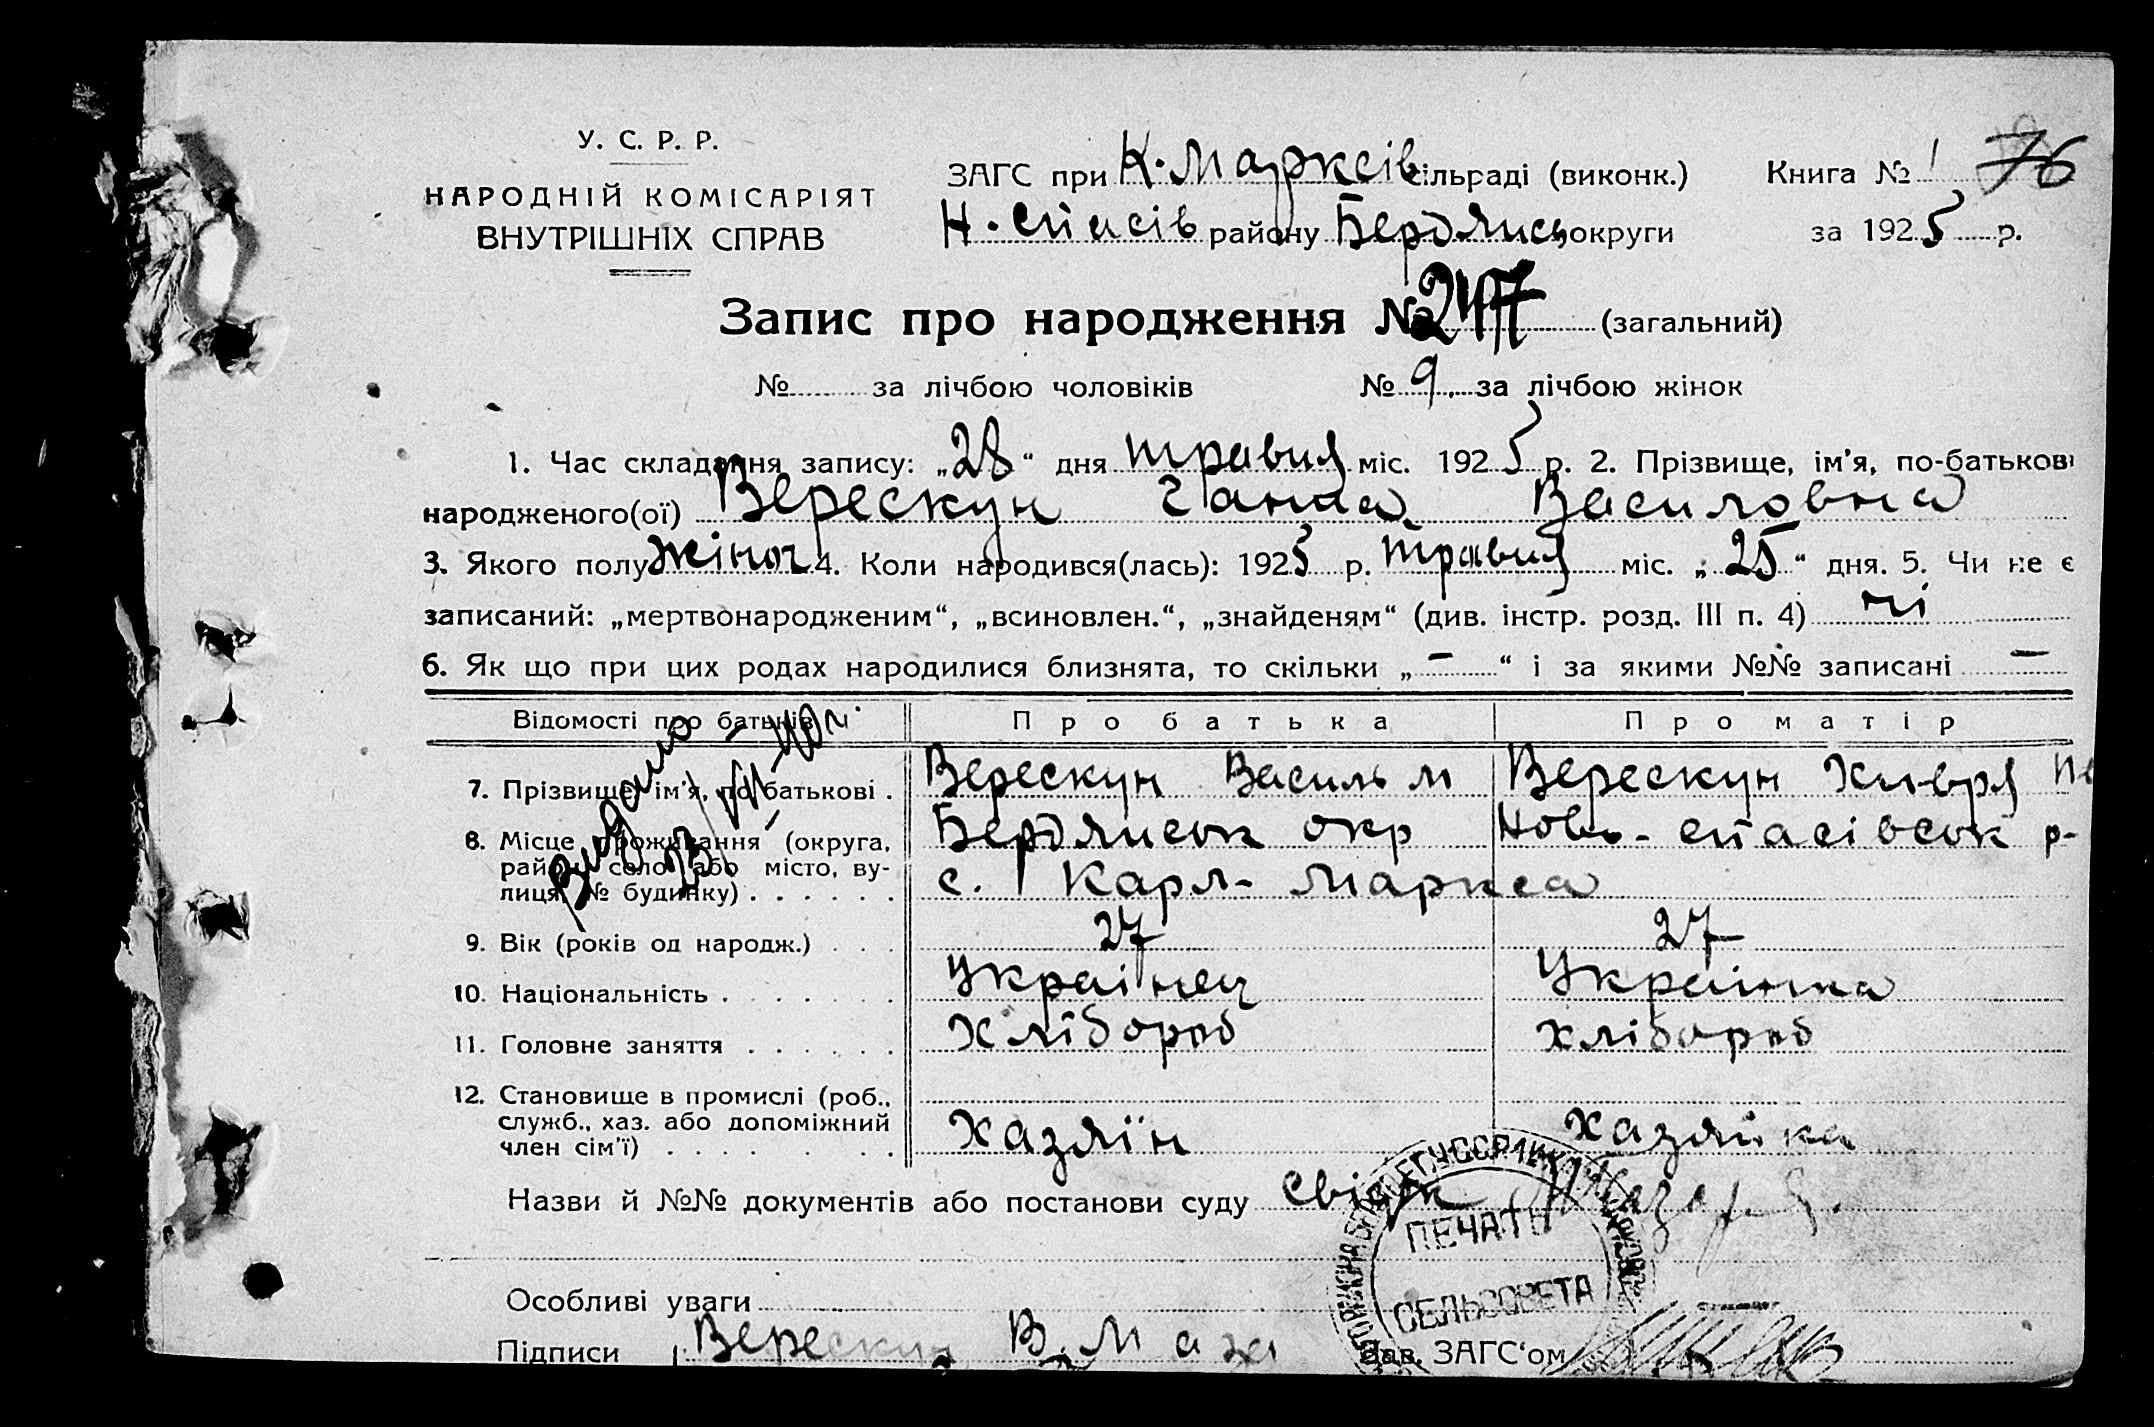 У. С. Р. Р.
НАРОДНІЙ КОМІСАРІЯТ
ВНУТРІШНІХ СПРАВ
ЗАГС при К. Марксів сільраді (виконк.) Книга № 1 76
Н. Спасів району Бердянськ округи за 1925 р.
Запис про народження № (загальний)
№ за лічбою чоловіків № 9 за лічбою жінок
1. Час складання запису: „28“ дня травня міс. 1925 р. 2. Прізвище, ім'я, по-батькові
народженого(ої) Верескун Ганна Василовна
3. Якого полу жіноч 4. Коли народився(лась): 1925 р. травня міс. „25“ дня. 5. Чи не є
записаний: „мертвонародженим“, „всиновлен.“, „знайденям“ (див. інстр. розд. III п. 4) ні
6. Як що при цих родах народилися близнята, то скільки „ — “ і за якими №№ записані —
Відомості про батьків Про батька Про матір
7. Прізвище, ім'я, по батькові . Верескун Василь М Верескун Хивря
8. Місце проживання (округа, Бердянськ окр Ново-Спасівськ р-
район, село або місто, ву-
лиця, № будинку) . . . . . . с. Карл-Маркса
9. Вік (років од народж.) . . . 27 27
10. Національність . . . . . . Українець Українка
11. Головне заняття . . . . . . Хлібороб хлібороб
12. Становище в промислі (роб.,
служб., хаз. або допоміжний
член сім'ї) . . . . . . . . Хазяїн хазяйка
Видано
Назви й №№ документів або постанови суду Свідок
ПЕЧАТЬ
СЕЛЬСОВЕТА
Особливі уваги
Підписи Верескун В. М Зав. ЗАГС'ом